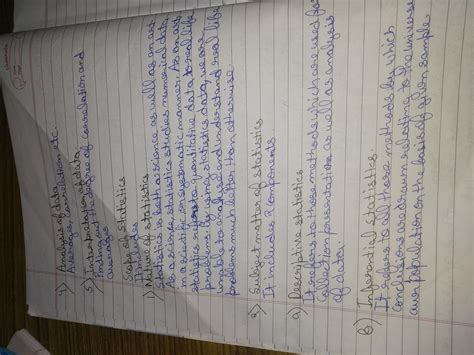 4) Analysis of data
Average, correlation etc
5) Interpretation of data
Finding out the degree of correlation and
averages
Scope of statistics
It includes
1) Nature of statistics
Statistics is both a science as well as an art.
As a science, statistics studies numerical data
in a scientific or systematic manner. As an art,
statistics quantitative data to real life
problems. By using statistics data, we are
able to analyse and understand real life
problems much better than otherwise.
2) Subject matter of statistics
It includes 2 components
a) Descriptive statistics
It means to those methods which are used for
collection, presentation as well as analysis
of data.
b) Inferential statistics.
It refers to all those methods by which
conclusions are drawn relating to the universe
population on the basis of given sample.